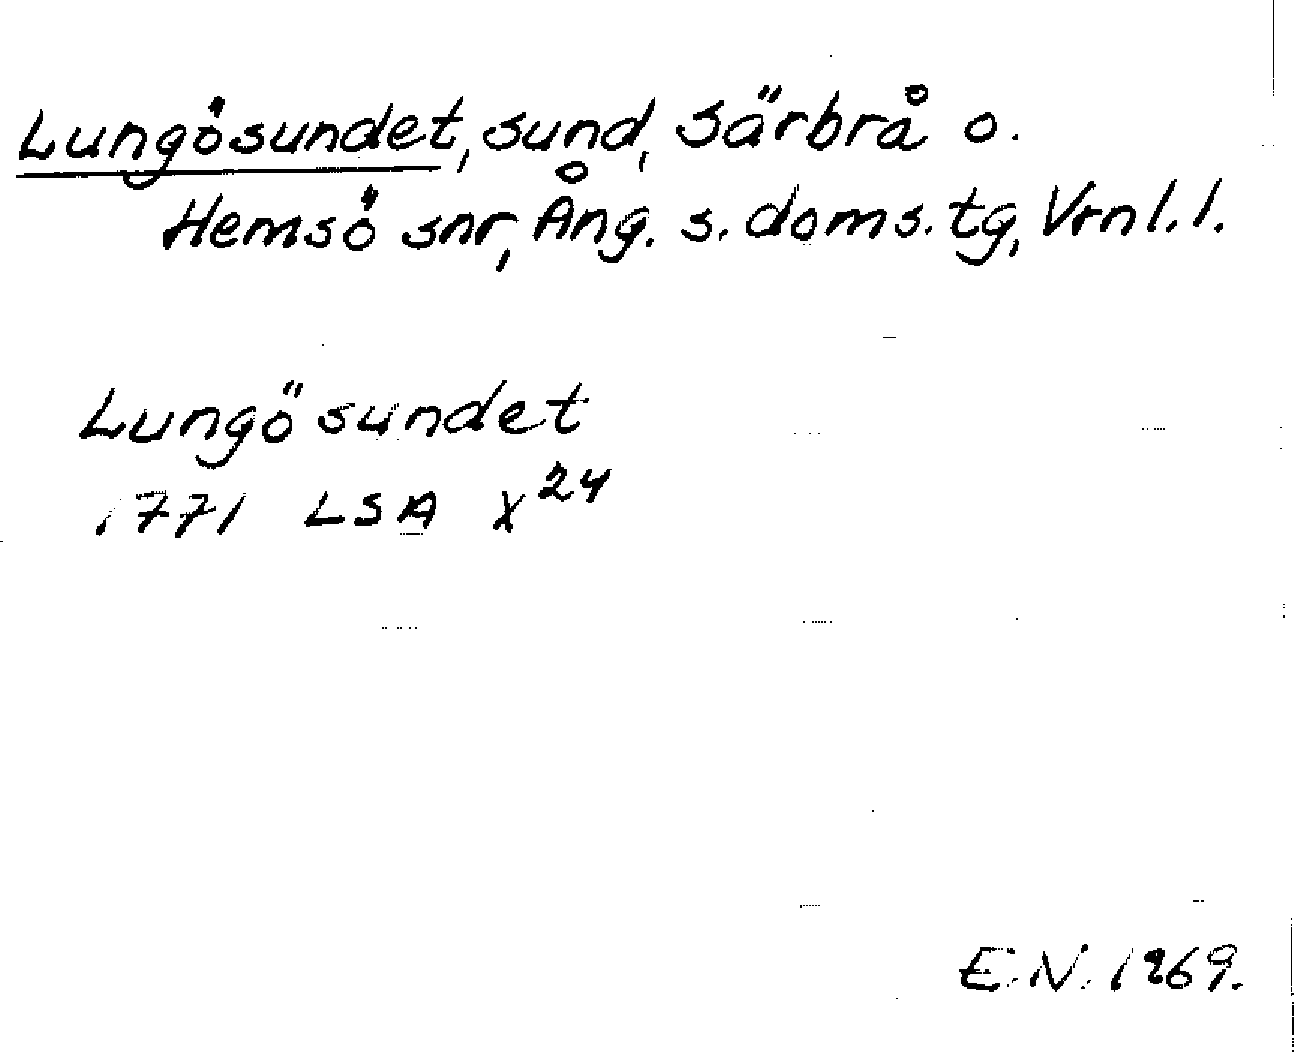 Lungösundet, sund, Särbrå o.
Hemsö snr, Ång. s. doms. tg, Vrnl. l.
Lungösundet
1771 LSA X 24
E.N. 1969.